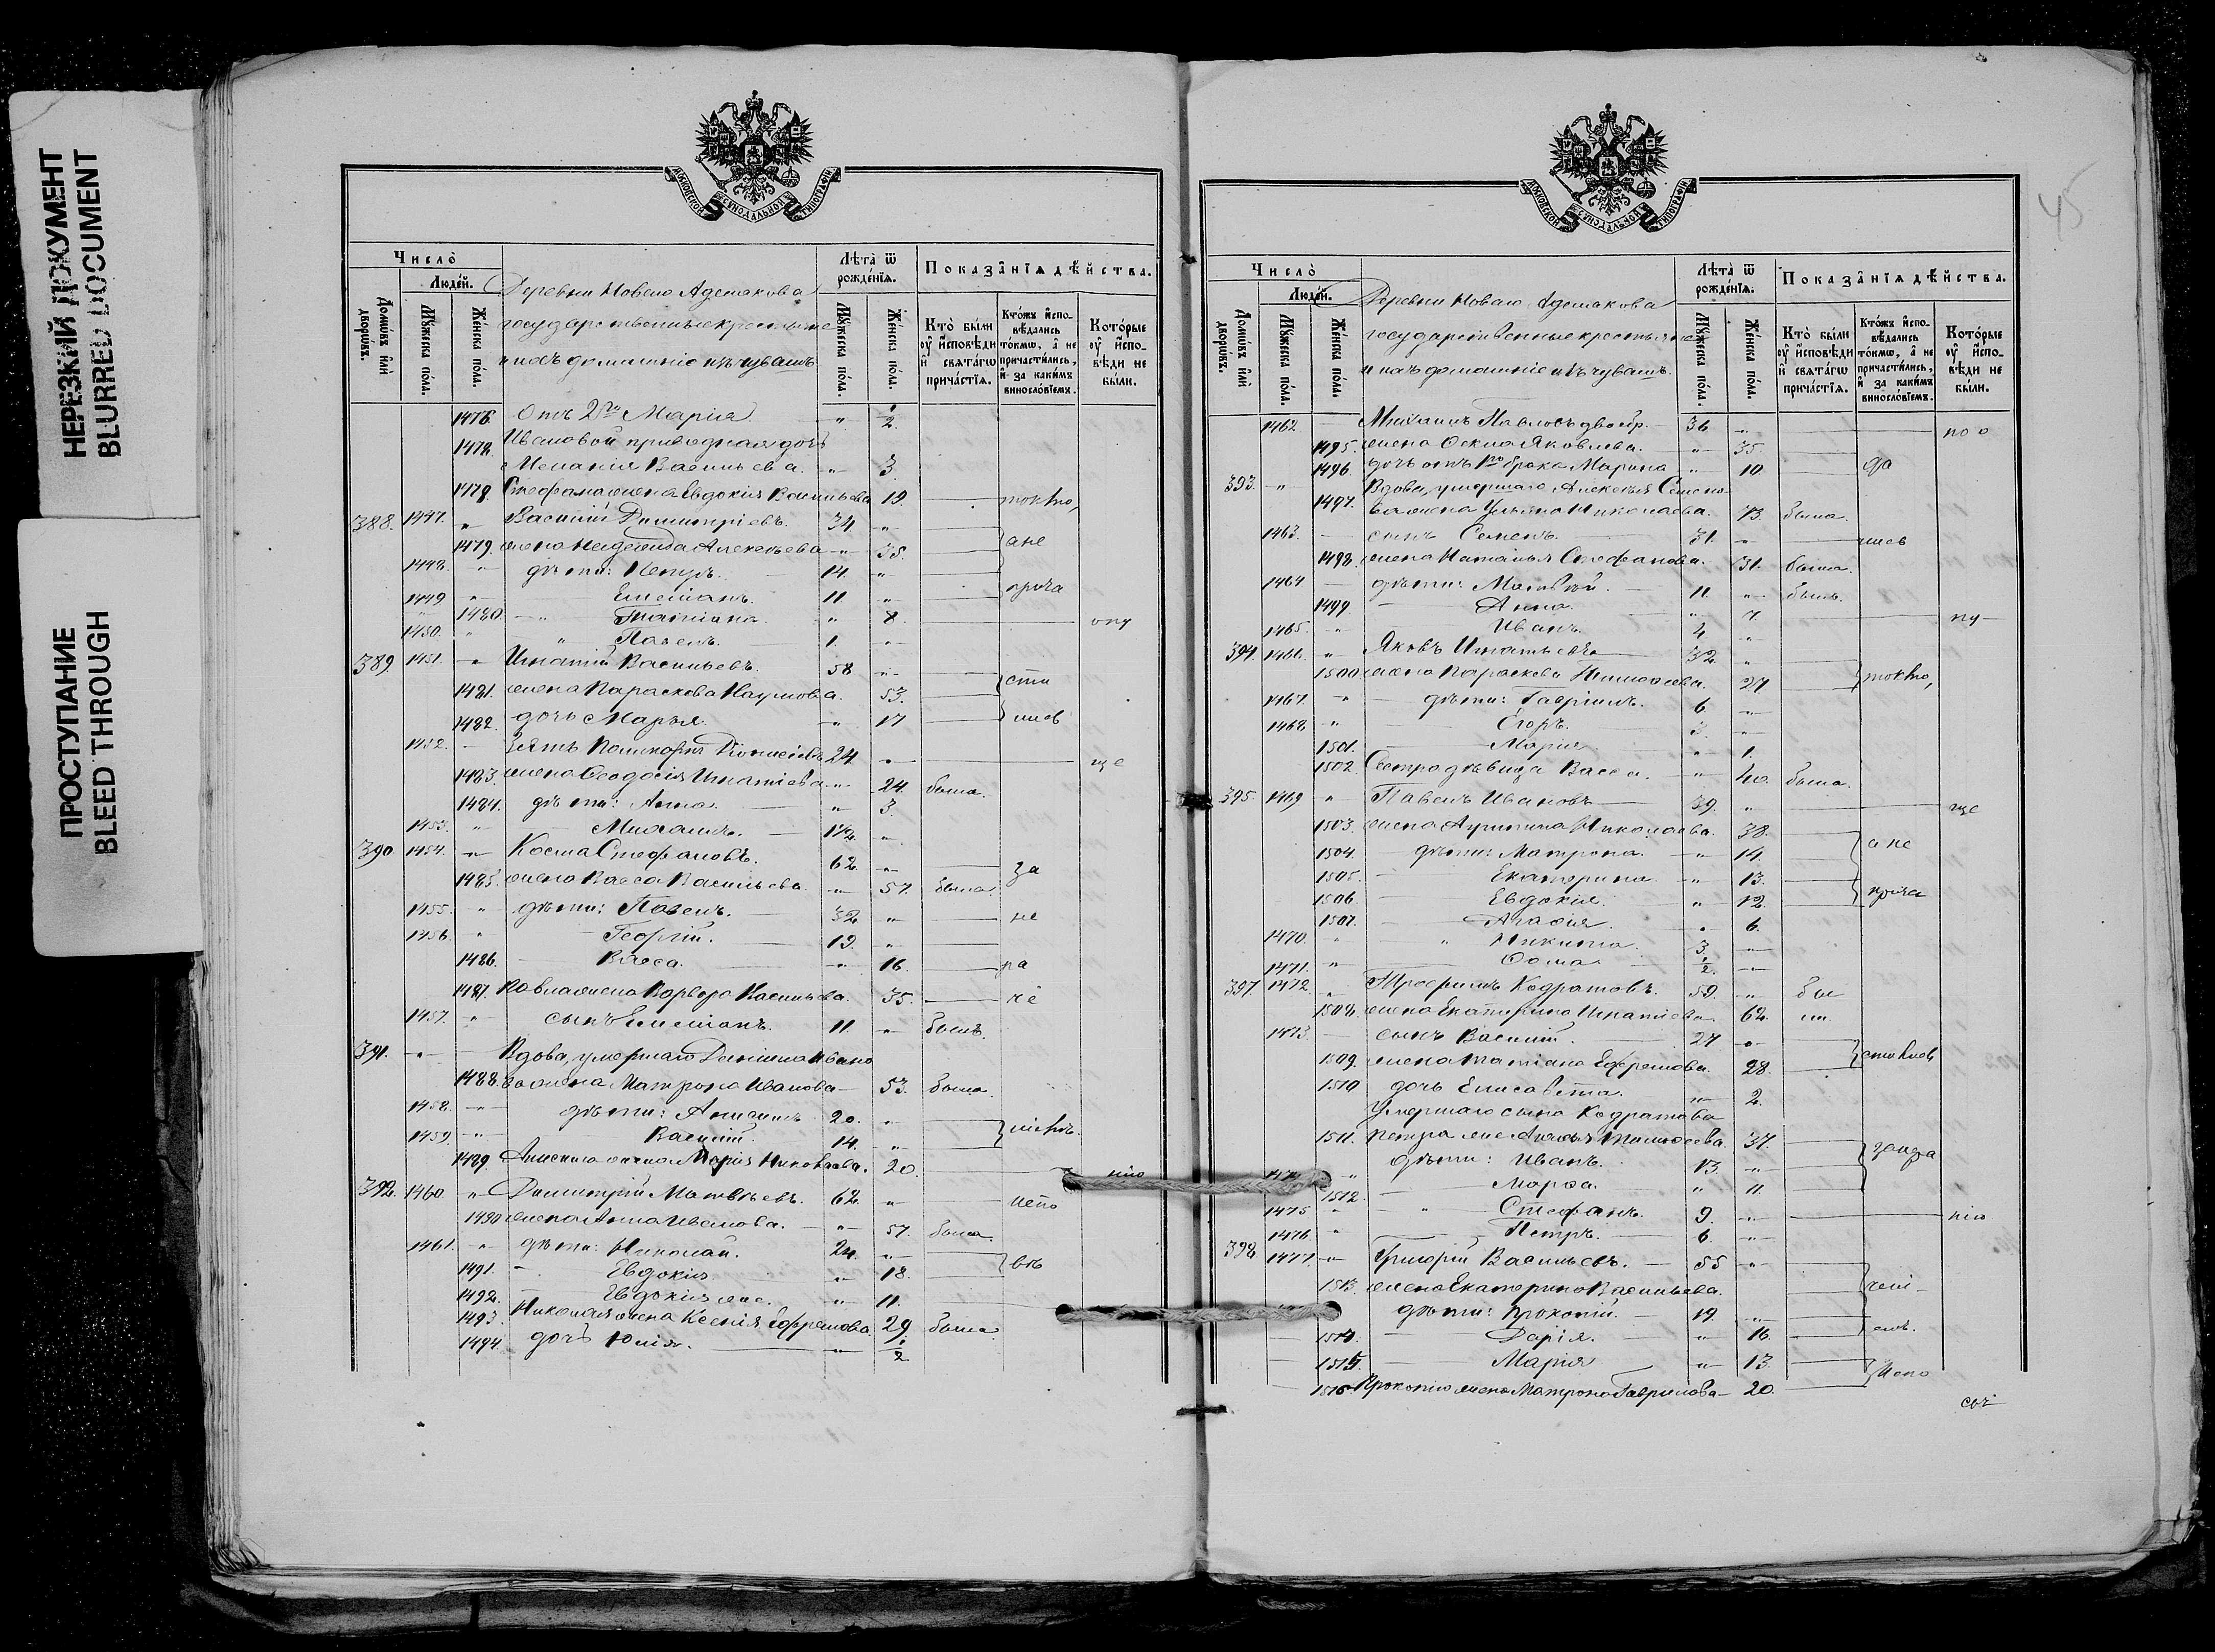 НЕРЕЗКИЙ ДОКУМЕНТ
BLURRED DOCUMENT
ПРОСТУПАНИЕ
BLEED THROUGH
МОСКОВСКОЙ СѴНОДАЛЬНОЙ ТИПОГРАФІИ
Число̀
Люде́й.
Домѡ́въ и҆лѝ дворѡ́въ.
Мꙋ́жеска по́ла.
Же́нска по́ла.
Деревни Новаго Адемакова
государственные крестьяне
и ихъ домашніе изъ чувашъ
Лѣта̀ ѿ рожде́нїѧ.
Мꙋ́жеска по́ла.
Же́нска по́ла.
Показа̂нїѧ дѣ́йства.
Кто̀ бы́ли оу҆ и҆сповѣди и҆ свѧта́гѡ прича́стїѧ.
Кто́жъ и҆спо-вѣдались то́кмѡ, а҆ не причасти́лись, и҆ за каки́мъ виносло́вїемъ.
Кото́рые оу҆ и҆спо-вѣди не бы́ли.
1476. Отъ 2го Марія " ½
Ивановой приводная дочь
1477. Меланія Васильева. " 3.
1478. Стефана жена Евдокія Васильева 19. токмо,
388. 1447. " Василій Димитріевъ. 34 "
1479. жена Надежда Алексѣева " 35. а не
1448. " дѣти: Петръ. 14. "
1449 " Емеліанъ. 11. " прича
1480. " Татіана. " 8. опу
1450. " " Павелъ. 1. "
389. 1451. " Игнатій Васильевъ. 58 " сти
1481. жена Параскева Наумова. 53.
1482. дочь Марья. " 17 лись
1452. Зять Поликарпъ Діонисіевъ 24 " ще
1483. жена Ѳеодосія Игнатіева " 24. была.
1484. дѣти: Анна. " 3.
1453. " Михаилъ. 1½. "
390. 1454. " Косма Стефановъ. 62. " за
1485. жена Васса Васильева. " 57. была.
1455. " дѣти: Павелъ. 32. " не
1456. " Георгій. 19. "
1486. Васса. " 16. ра
1487. Павла жена Варвара Васильева. 35. нѣ
1457. " сынъ Емеліанъ. 11. " былъ.
391. " Вдова, умершаго Даніила Ивано
1488. ва жена Матрона Иванова 53. была.
1458. " дѣти: Анисимъ. 20. "
1459. " Василій. 14. " ніемъ.
1489 Анисима жена Марія Николаева. 20. нію
392. 1460. " Димитрій Матвѣевъ. 62. " испо
1490 жена Анна Иванова. " 57. была.
1461. " дѣти: Николай. 24. "
1491. Евдокія " 18. вѣ
1492. Евдокія же. " 11.
1493. Николая жена Ксенія Ефремова. 29. была.
1494. дочь Юлія. " ½
45
МОСКОВСКОЙ СѴНОДАЛЬНОЙ ТИПОГРАФІИ
Число̀
Люде́й.
Домѡ́въ и҆лѝ дворѡ́въ.
Мꙋ́жеска по́ла.
Же́нска по́ла.
Деревни Новаго Адемакова
государственные крестьяне
и ихъ домашніе изъ чувашъ.
Лѣта̀ ѿ рожде́нїѧ.
Мꙋ́жеска по́ла.
Же́нска по́ла.
Показа̂нїѧ дѣ́йства.
Кто̀ бы́ли оу҆ и҆сповѣди и҆ свѧта́гѡ прича́стїѧ.
Кто́жъ и҆спо-вѣдались то́кмѡ, а҆ не причасти́лись, и҆ за каки́мъ виносло́вїемъ.
Кото́рые оу҆ и҆спо-вѣди не бы́ли.
1462 Михаилъ Павловъ двоебр. 36 " по о
1495. жена Ѳекла Яковлева. " 35.
1496. дочь отъ 1го брака Марина " 10. да
393. " Вдова, умершаго Алексѣя Семено-
1497. ва жена Ульяна Николаева. 73. была.
1463. сынъ Семенъ. 31. " лись
1498. жена Наталья Стефанова. 31. была.
1464 дѣти: Матвѣй. 11 " былъ.
1499. Анна. " 7. пу-
1465. " Иванъ. 4. "
394. 1466. " Яковъ Игнатьевъ 32. "
1500 жена Параскева Тимоѳеева. 27 токмо,
1467. " дѣти: Гавріилъ. 6. "
1468 " Егоръ. 3. "
1501. Марія " 1.
1502. Сестра дѣвица Васса. " 40. была.
395. 1469 " Павелъ Ивановъ 39. " ще
1503. жена Агрипина Николаева. 38.
1504. дѣти: Матрона. " 14. а не
1505. Екатерина " 13.
1506. Евдокія. " 12. прича
1507. Агаѳія. " 6.
1470. " " Никита. 3. "
1471. " Ѳома. ½. "
397. 1472. " Трофимъ Кодратовъ. 59. " бы
1508. жена Екатерина Игнатіева 62. ли.
1473. сынъ Василій. 27 "
1509. жена Татіана Ефремова. 28. стились
1510 дочь Елисавета. " 2.
Умершаго сына Кодратова
1511. Петра жена Тимоѳеева. 37.
дѣти: Иванъ. 13. "
1512. Марѳа. " 11.
1475 " " Стефанъ. 9. " нію
1476. " Петръ. 6. "
398. 1477. " Григорій Васильевъ. 55 "
1513. жена Екатерина Васильева.
дѣти: Прокопій. 19. "
1514. Дарія. " 16. емъ.
1515. Марія " 13.
1516. Прокопія жена Матрона Гаврилова 20. испо